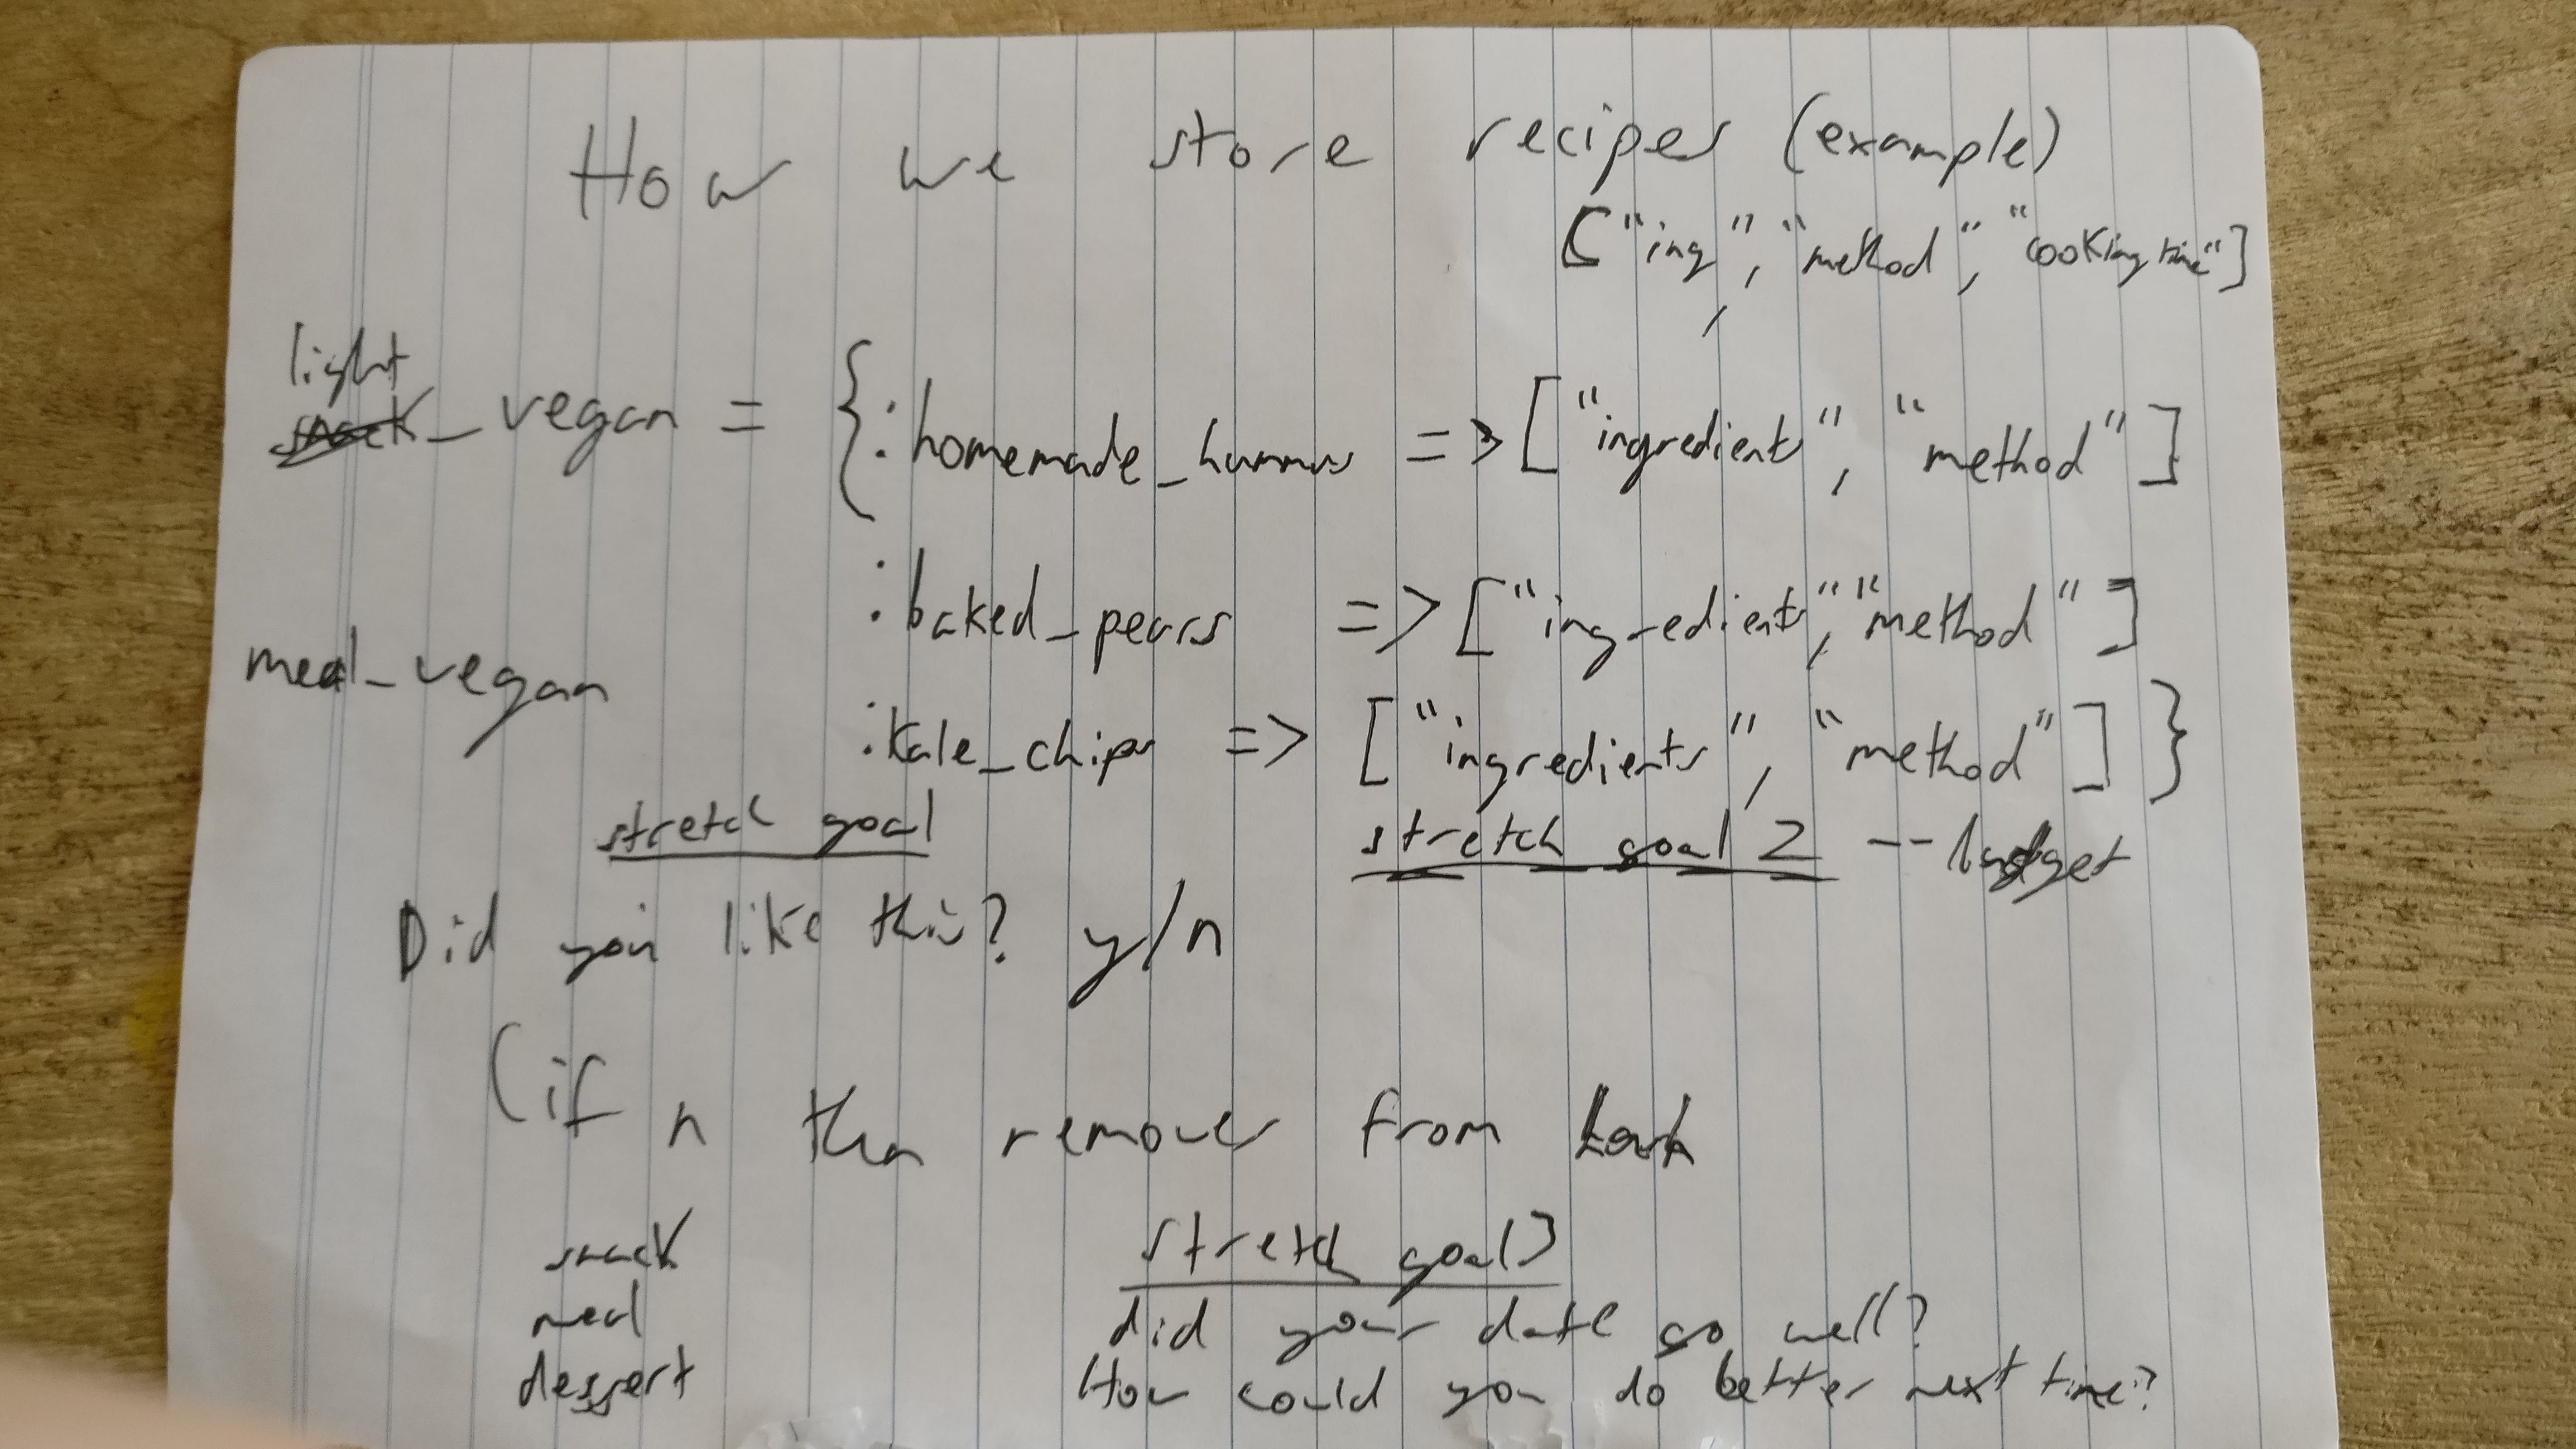 How we store recipes (example)
["ing", "method", "cooking time"]
light
snack_vegan = {:homemade_hummus => ["ingredient", "method"]
:baked_pears => ["ingredients", "method"]
meal_vegan
:kale_chips => ["ingredients", "method"] }
stretch goal
stretch goal 2 -- budget
Did you like this? y/n
(if n then remove from
snack
meal
dessert
stretch goal 3
did your date go well?
How could you do better next time?